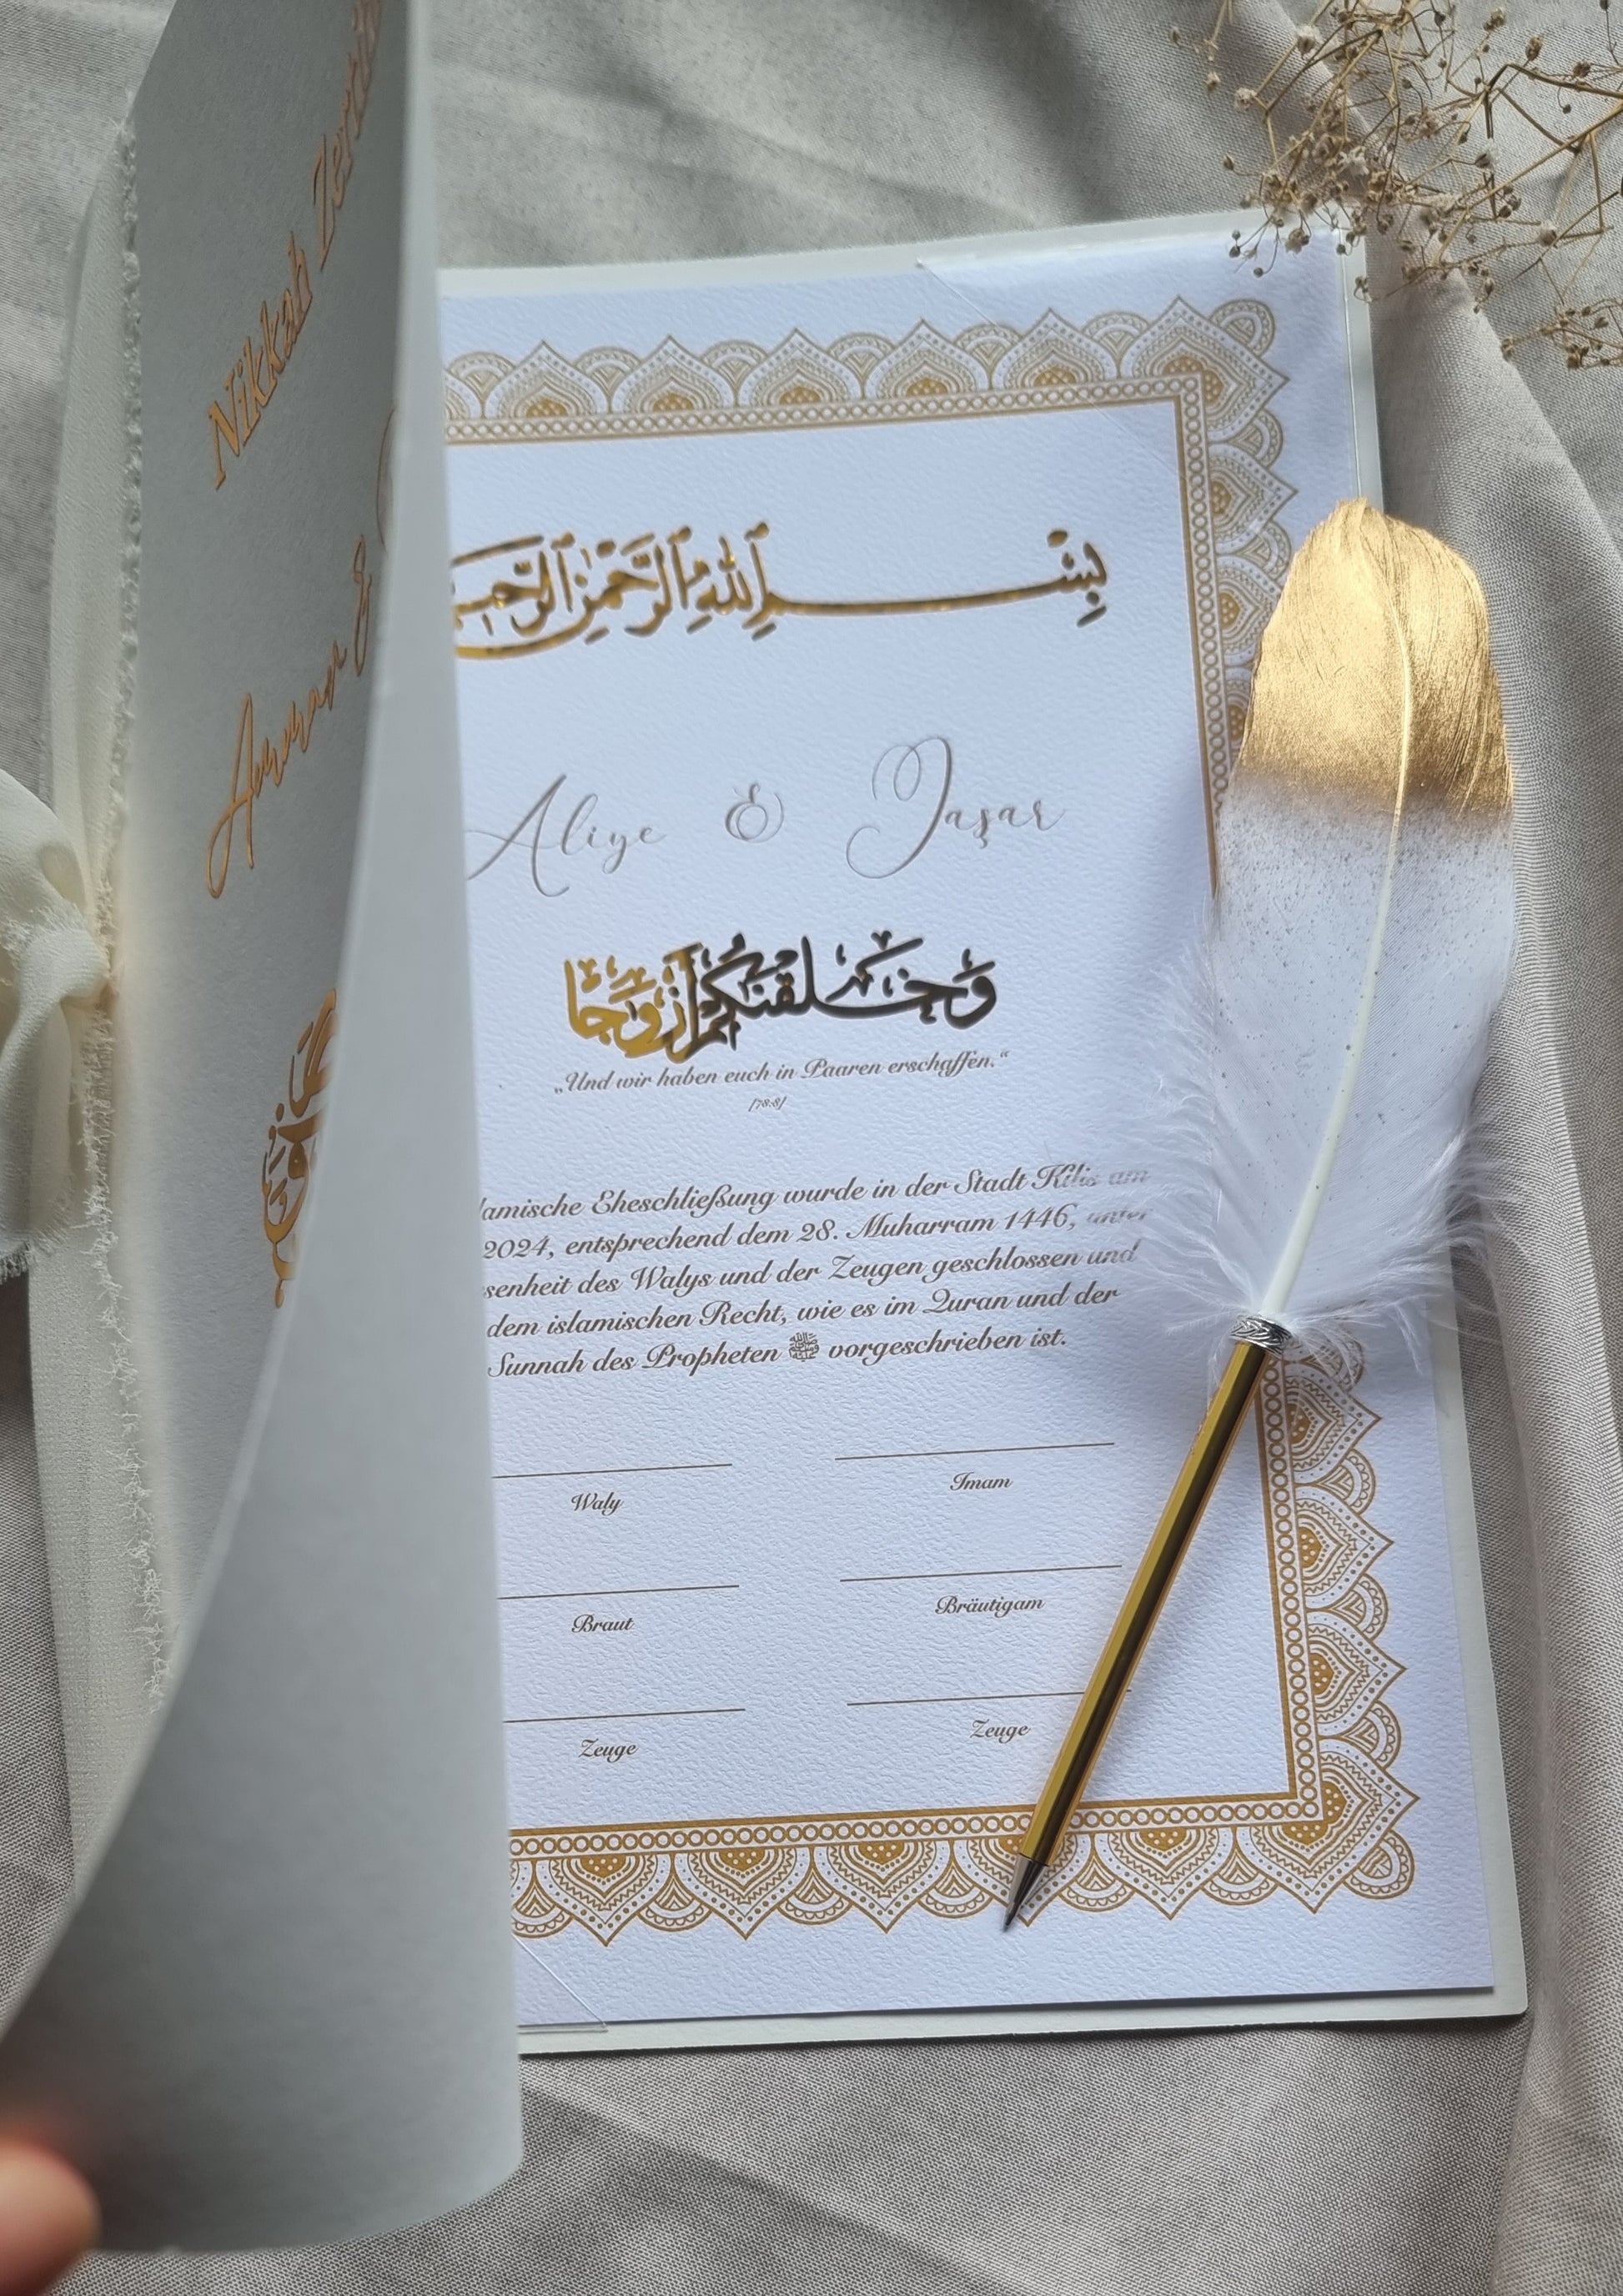 Nikkah
Amman &
بِسْمِ ٱللَّهِ ٱلرَّحْمَٰنِ
Aliye & Jaşar
وَخَلَقْنَكُمْ أَزْوَجًا
„Und wir haben euch in Paaren erschaffen.“
[78:8]
Eheschließung wurde in der Stadt Kilis am
2024, entsprechend dem 28. Muharram 1446, unter
des Walys und der Zeugen geschlossen und
dem islamischen Recht, wie es im Quran und der
Sunnah des Propheten ﷺ vorgeschrieben ist.
Waly
Imam
Braut
Bräutigam
Zeuge
Zeuge